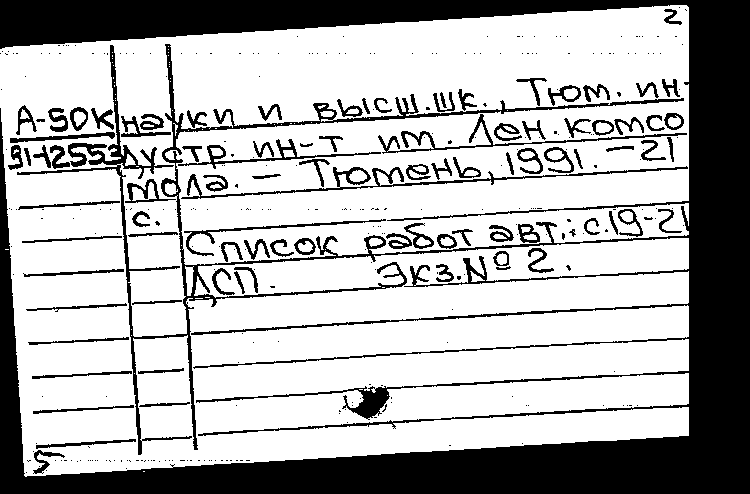 2
А-50К науки и высш.шк., Тюм. ин-
91-12553 дустр. ин-т им. Лен. комсо
мола. — Тюмень, 1991. — 21
с.
Список работ авт.: с.19-21
ДСП. Экз.№ 2.
5